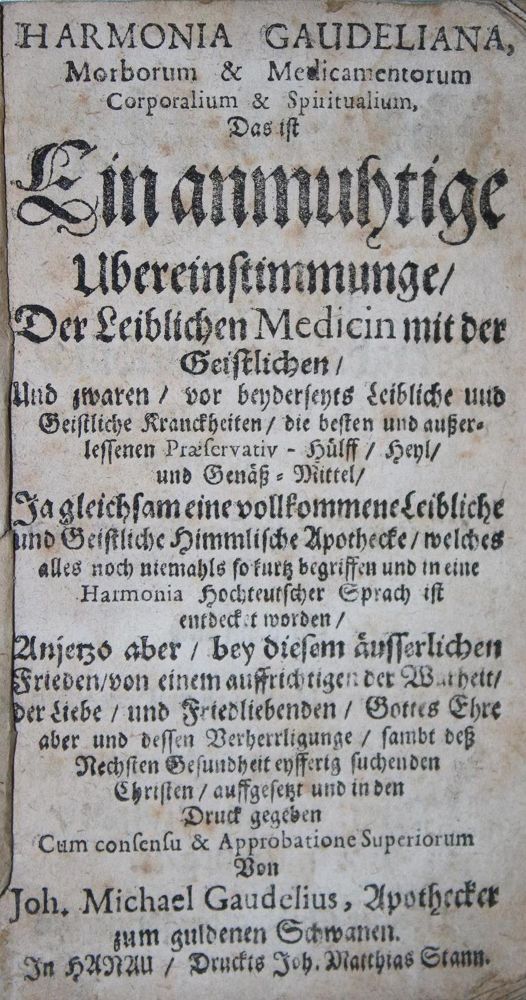 HARMONIA GAUDELIANA,
Morborum & Medicamentorum
Corporalium & Spiritualium,
Das ist
Ein anmuhtige
Ubereinstimmunge/
Der Leiblichen Medicin mit der
Geistlichen/
Und zwaren / vor beyderseyts Leibliche und
Geistliche Kranckheiten / die besten und außer-
lessenen Præservativ - Hülff / Heyl/
und Genäß-Mittel/
Ja gleichsam eine vollkommene Leibliche
und Geistliche Himmlische Apothecke / welches
alles noch niemahls so kurtz begriffen und in eine
Harmonia Hochteutscher Sprach ist
entdecket worden /
Anjetzo aber / bey diesem äusserlichen
Frieden / von einem auffrichtigen der Warheit/
der Liebe / und Friedliebenden / Gottes Ehre
aber und dessen Verherrligunge / sambt deß
Nechsten Gesundheit eyfferig suchenden
Christen / auffgesetzt und in den
Druck gegeben
Cum consensu & Approbatione Superiorum
Von
Joh. Michael Gaudelius, Apothecker
zum guldenen Schwanen.
In HANAU / Druckts Joh. Matthias Stann.